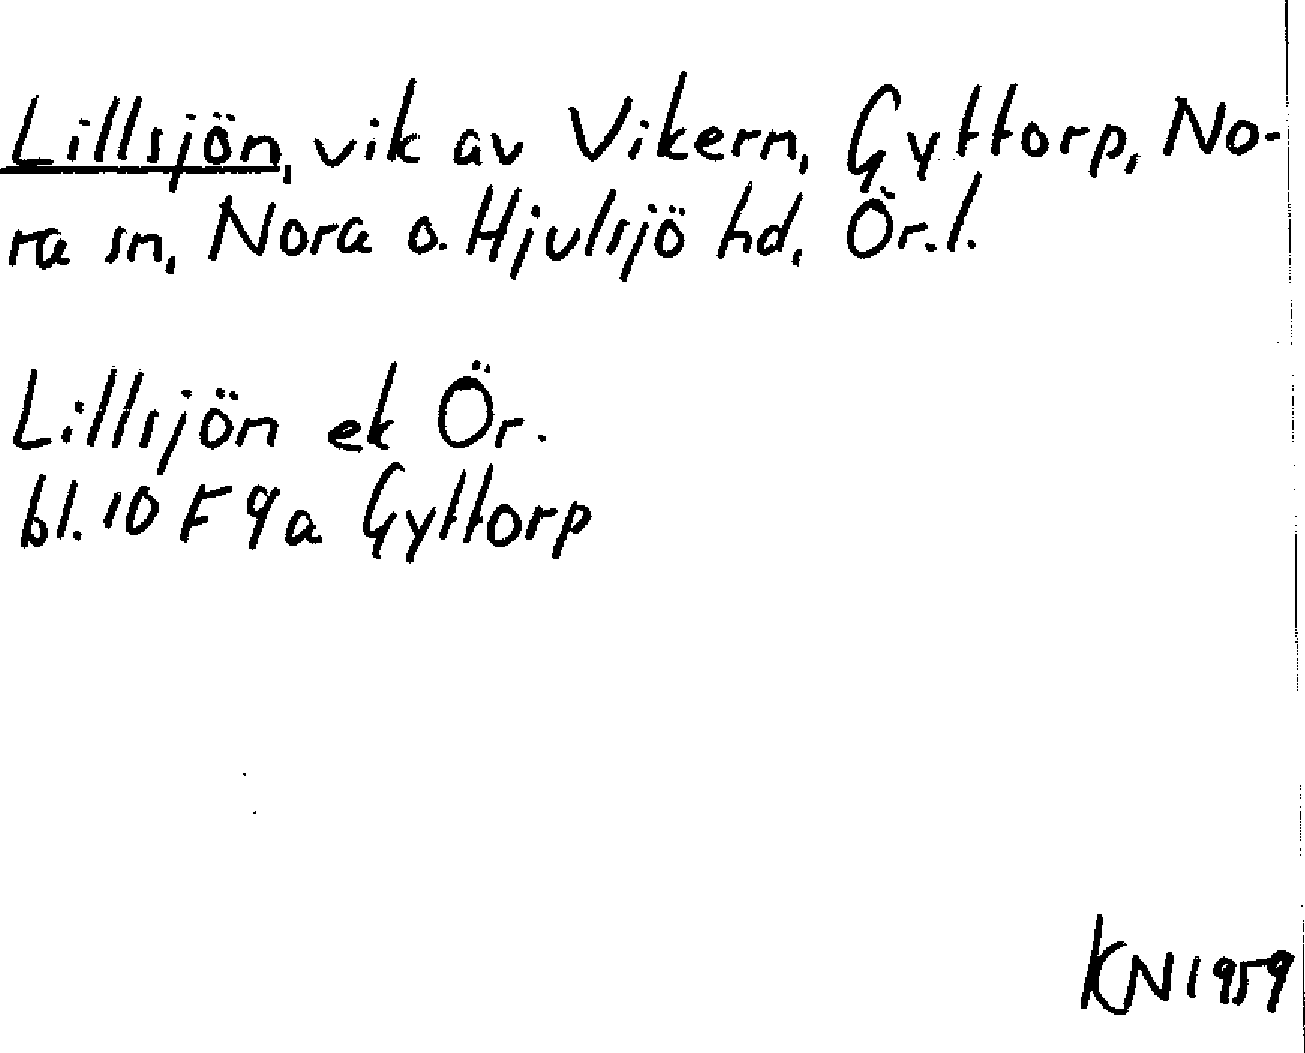 Lillsjön, vik av Vikern, Gyttorp, No-
ra sn, Nora o. Hjulsjö hd, Ör.l.
Lillsjön ek Ör.
bl. 10 F 9a Gyttorp
KN 1959